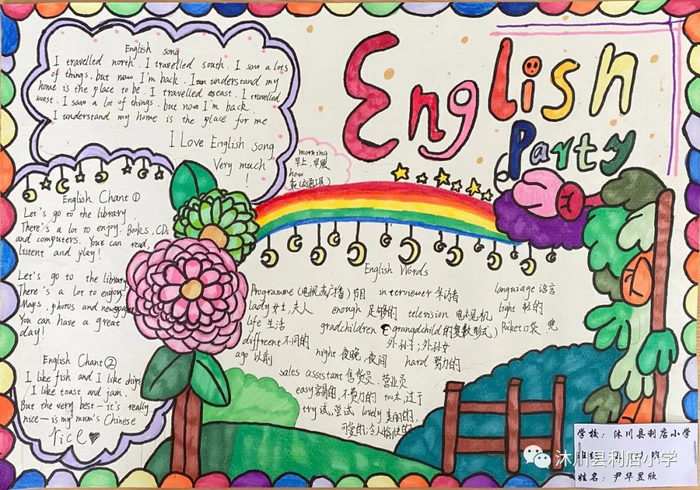 English song
I travelled north. I travelled south. I saw a lots
of things. but now I'm back. I understand my
home is the place to be. I travelled east. I travelled
west. I saw a lot of things. but now I'm back.
I understand my home is the place for me
I Love English song
Very much
!
English
Party
morning
早上,早晨
how
English Chant ①
Let's go to the library
There's a lot to enjoy. Books, CDs
and computers. Your can read,
listent and play!
Let's go to the library
There's a lot to enjoy.
Maps, photos and newspapers
You can have a great
day!
English Chant ②
I like fish and I like chips
I like toast and jam.
But the very best-it's really
nice-is my mum's Chinese
rice
English Words
Programme (电视或广播)节目 interviewer 采访者 language 语言
lady 女士,夫人 enough 足够的 television 电视机 light 轻的
life 生活 gradchildren (grangdchild的复数形式) Poket 口袋
different 不同的 外孙子;外孙女
ago 以前 night 夜晚,夜间 hard 努力的
sales assistant 售货员,营业员
easy 容易的,不费力的 too 太,过于
try 试,尝试 lovely 美丽的,
可爱的,令人愉快的
学校:沐川县利店小学
姓名:尹华昱欣
沐川县利店小学